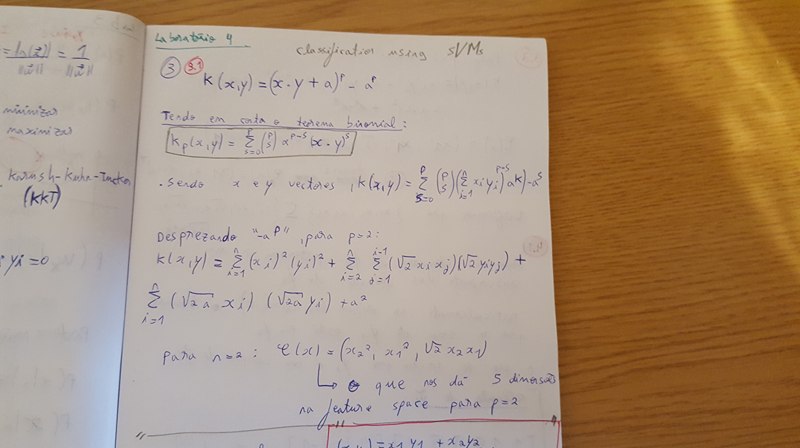 = 1
||w||
minimizar
maximizar
Karush-Kuhn-Tucker
(KKT)
i yi = 0
Laboratório 4
Classification using SVMs
3 3.1
K(x,y) = (x·y + a)^p - a^p
Tendo em conta o teorema binomial:
Kp(x,y) = Σ_{s=0}^{p} (p s) a^{p-s} (x·y)^s
. Sendo x e y vectores, K(x,y) = Σ_{s=0}^{p} (p s) (Σ_{i=1}^{n} xi yi)^{p-s} a
Desprezando "-a^p", para p=2:
K(x,y) = Σ_{i=1}^{n} (xi)² (yi)² + Σ_{i=2}^{n} Σ_{j=1}^{i-1} (√2 xi xj)(√2 yi yj) +
Σ_{i=1}^{n} (√2a xi) (√2a yi) + a²
para n=2 : φ(x) = (x2², x1², √2 x2 x1)
↳ o que nos dá 5 dimensão
na feature space para p=2
= x1 y1 + x2 y2